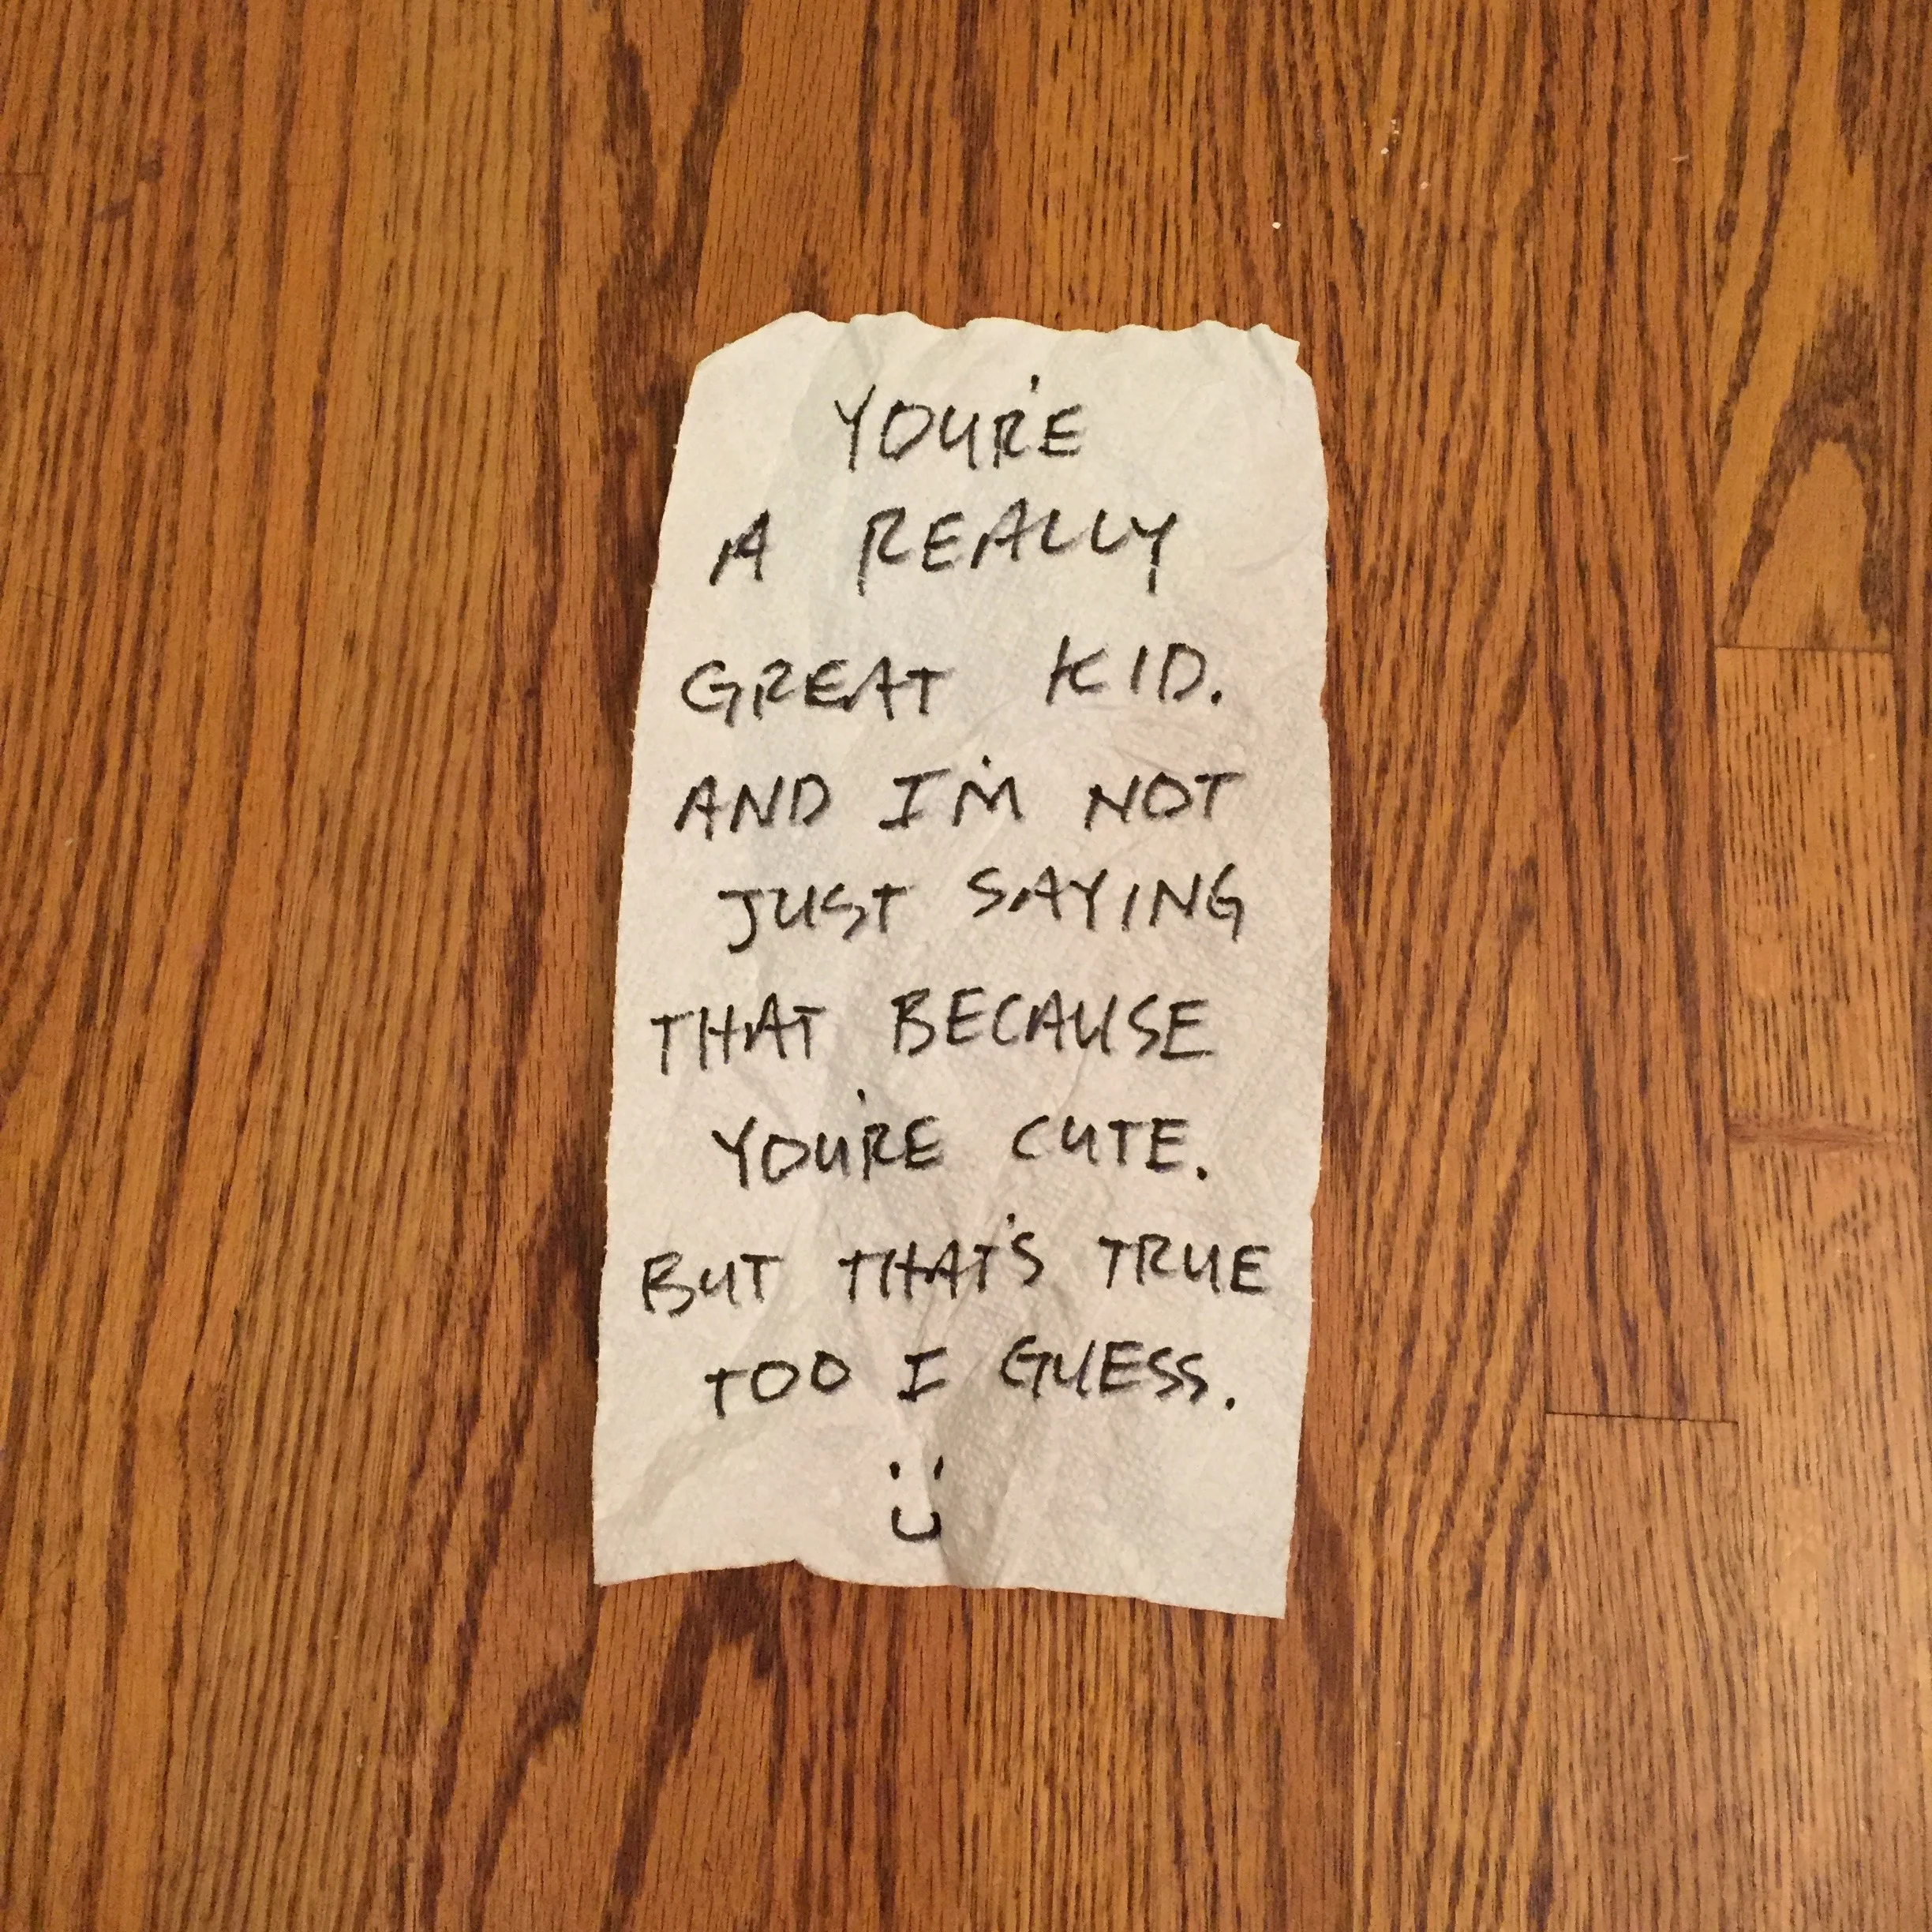 YOU'RE
A REALLY
GREAT KID.
AND I'M NOT
JUST SAYING
THAT BECAUSE
YOU'RE CUTE.
BUT THAT'S TRUE
TOO I GUESS.